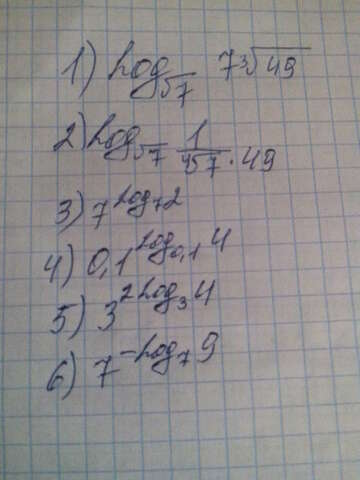 1) Log_√7 7∛49
2) Log_√7 1/(∜7 · 49)
3) 7^(Log_7 2)
4) 0,1^(Log_0,1 4)
5) 3^(2Log_3 4)
6) 7^(-Log_7 9)